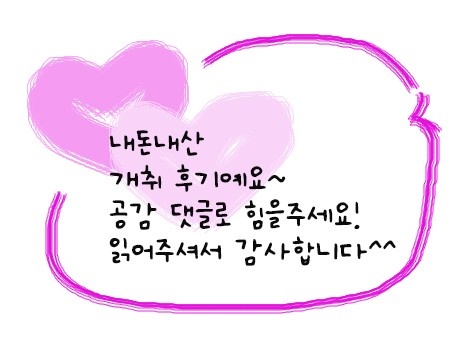 내돈내산
개취 후기예요~
공감 댓글로 힘을주세요!
읽어주셔서 감사합니다^^